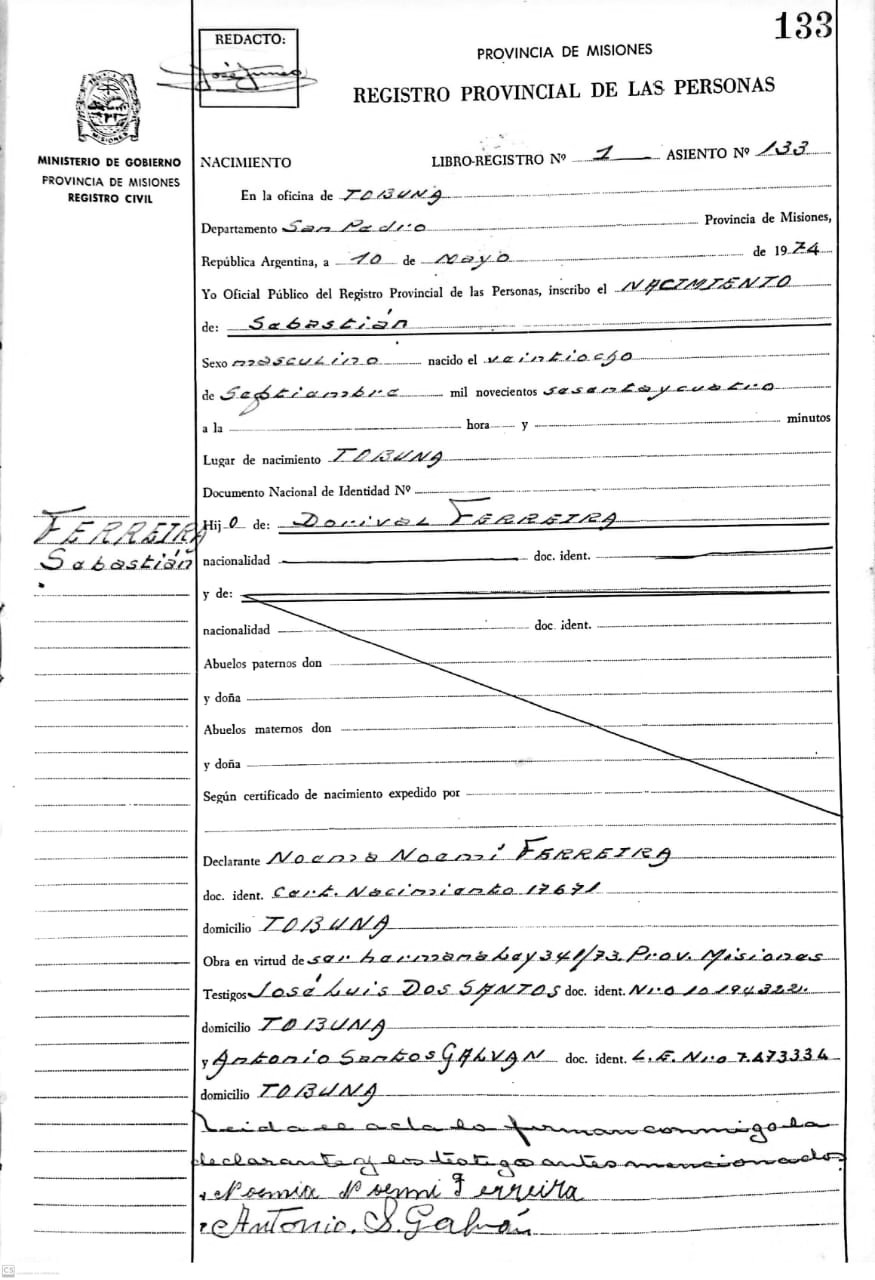 133
REDACTO:
PROVINCIA DE MISIONES
REGISTRO PROVINCIAL DE LAS PERSONAS
MISIONES
MINISTERIO DE GOBIERNO
PROVINCIA DE MISIONES
REGISTRO CIVIL
NACIMIENTO LIBRO-REGISTRO Nº 1 ASIENTO Nº 133
En la oficina de TOBUNA
Departamento San Pedro Provincia de Misiones,
República Argentina, a 10 de Mayo de 1974
Yo Oficial Público del Registro Provincial de las Personas, inscribo el NACIMIENTO
de: Sebastián
Sexo masculino nacido el veintiocho
de Septiembre mil novecientos sesenta y cuatro
a la hora y minutos
Lugar de nacimiento TOBUNA
Documento Nacional de Identidad Nº
Hijo de: Dorival FERREIRA
FERREIRA
Sebastián
nacionalidad doc. ident.
y de:
nacionalidad doc. ident.
Abuelos paternos don
y doña
Abuelos maternos don
y doña
Según certificado de nacimiento expedido por
Declarante Noemia Noemí FERREIRA
doc. ident. Cert. Nacimiento 17671
domicilio TOBUNA
Obra en virtud de ser hermana Ley 341/73. Prov. Misiones
Testigos José Luis DOS SANTOS doc. ident. Nro 10194322.
domicilio TOBUNA
y Antonio Santos GALVAN doc. ident. L.E. Nro 7.473334
domicilio TOBUNA
Leida el acta la firman conmigo la
declarante y los testigo antes mencionados
Noemia Noemi Ferreira
Antonio. S. Galván
CS